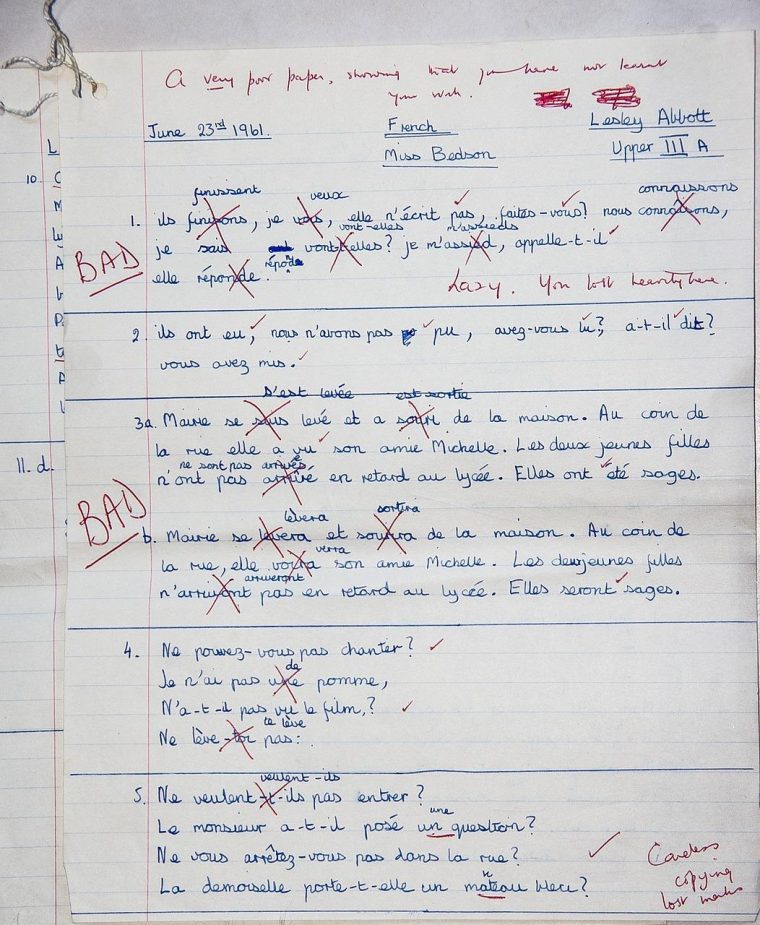 A very poor paper, showing that you have not learnt
your work.
June 23rd 1961. French Lesley Abbott
Miss Bedson Upper III A
finissent veux connaissons
1. ils finisons, je vois, elle n'écrit pas, faites-vous? nous connaîsons,
vont-elles m'assieds
je sais vont-t-elles? je m'assied, appelle-t-il
BAD
elle réponde. répond
Lazy. You lost heavily here.
2. ils ont eu, nous n'avons pas pu, avez-vous lu?, a-t-il dit?
vous avez mis.
s'est levée est sortie
3a. Mairie se suis levé et a souri de la maison. Au coin de
la rue elle a vu son amie Michelle. Les deux jeunes filles
ne sont pas arrivés
n'ont pas arrivé en retard au lycée. Elles ont été sages.
BAD
lèvera sortira
b. Mairie se levera et sourira de la maison. Au coin de
verra
la rue, elle voira son amie Michelle. Les deux jeunes filles
arriveront
n'arrivont pas en retard au lycée. Elles seront sages.
4. Ne pouvez-vous pas chanter?
de
Je n'ai pas une pomme,
N'a-t-il pas vu le film,?
te lève
Ne lève-toi pas:
veulent-ils
5. Ne veulent-t-ils pas entrer?
une
Le monsieur a-t-il posé un question?
Ne vous arrêtez-vous pas dans la rue?
n
La demoiselle porte-t-elle un mateau bleu?
Careless
copying
lost marks
L
10. C
M
A
P
t
A
11. d.